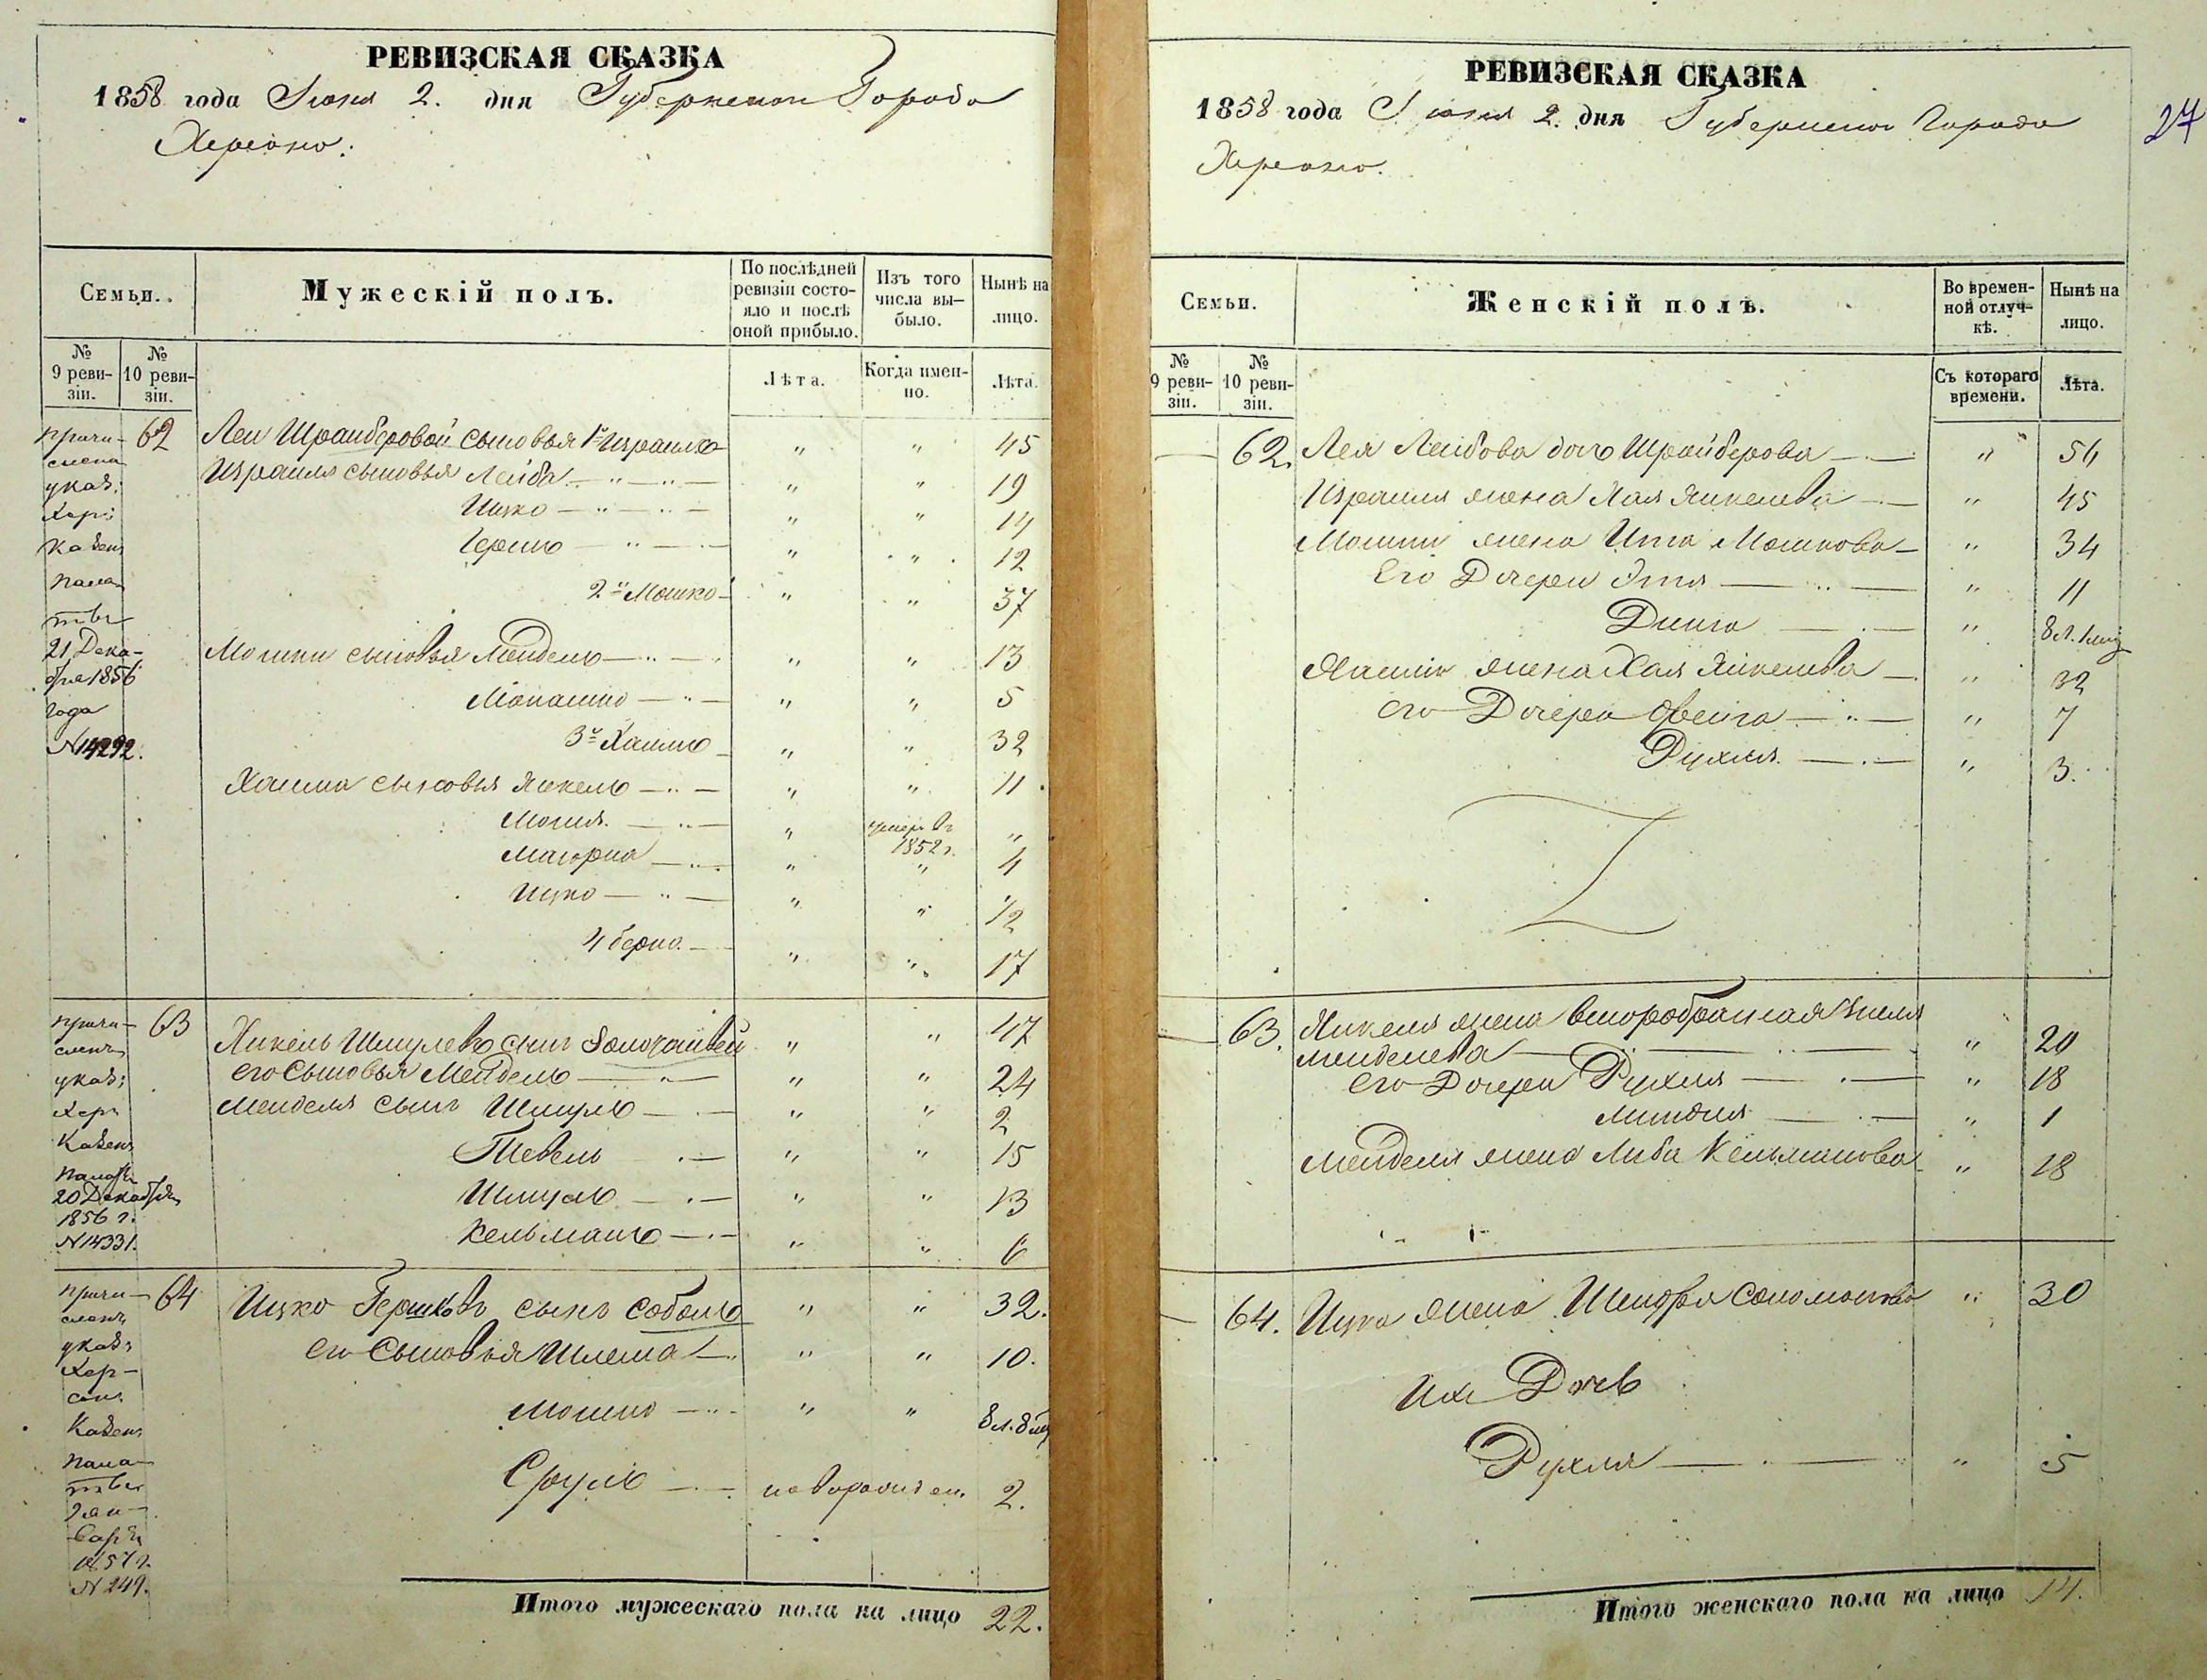 РЕВИЗСКАЯ СКАЗКА
1858 года Іюня 2. дня Губернского Города
Херсона.
Семьи.
Мужескій полъ.
По послѣдней
ревизіи состо-
яло и послѣ
оной прибыло.
Изъ того
числа вы-
было.
Нынѣ на
лицо.
№
9 реви-
зіи.
№
10 реви-
зіи.
Лѣта.
Когда имен-
но.
Лѣта.
причи-
слена
указ:
Хер:
казен
пала-
ты
21 Дека-
бря 1856
года
№14292.
62 Леи Шрайберовой сыновья 1й Израиль " " 45
Израиля сыновья Лейба " " 19
Ицко " " 14
Герш " " 12
2й Мошко " " 37
Мошки сыновья Мендель " " 13
Монашко " " 5
3й Хаимъ " " 32
Хаима сыновья Янкель " " 11
" умеръ въ 1852 г. "
" " 4
Ицко " " 1/2
4 Берко " " 17
причи-
сленъ
указ:
Хер:
Казен:
Палаты
20 Декабря
1856 г.
№14331.
63 Янкель Шмулевъ сынъ " " 47
его Сыновья Мендель " " 24
Менделя сынъ Шмуль " " 2
Тевель " " 15
Шмуль " " 13
Кельманъ " " 6
причи-
сленъ
указ:
Хер-
сон:
Казен:
Пала-
ты
Ген-
варя
1857 г.
№ 249.
64 Ицко Гершковъ сынъ Соболь " " 32.
его Сыновья Шлема " " 10.
Мошко " " 8 л. 8 мц
Сруль новорожден. 2.
Итого мужескаго пола на лицо 22.
РЕВИЗСКАЯ СКАЗКА
1858 года Іюня 2. дня Губернского Города
Херсона.
27
Семьи.
Женскій полъ.
Во времен-
ной отлуч-
кѣ.
Нынѣ на
лицо.
№
9 реви-
зіи.
№
10 реви-
зіи.
Съ котораго
времени.
Лѣта.
62. Лея Лейбова дочь Шрайберова " 54
Израиля жена Хая Янкелева " 45
Мошки жена Ита Мошкова " 34
Его Дочери Этя " 11
" 8 л. 1 мц
Хаима жена Хая Янкелева " 32
его Дочери Двейга " 7
Рухля " 3.
63. Янкеля жена второбрачная
Менделева " 20
его Дочери Рухля " 18
" 1
Менделя жена Либа Кельманова " 18
64. Ицка жена Шендля Соломонова " 30
Ихъ Дочь
Рухля " 5
Итого женскаго пола на лицо 14.